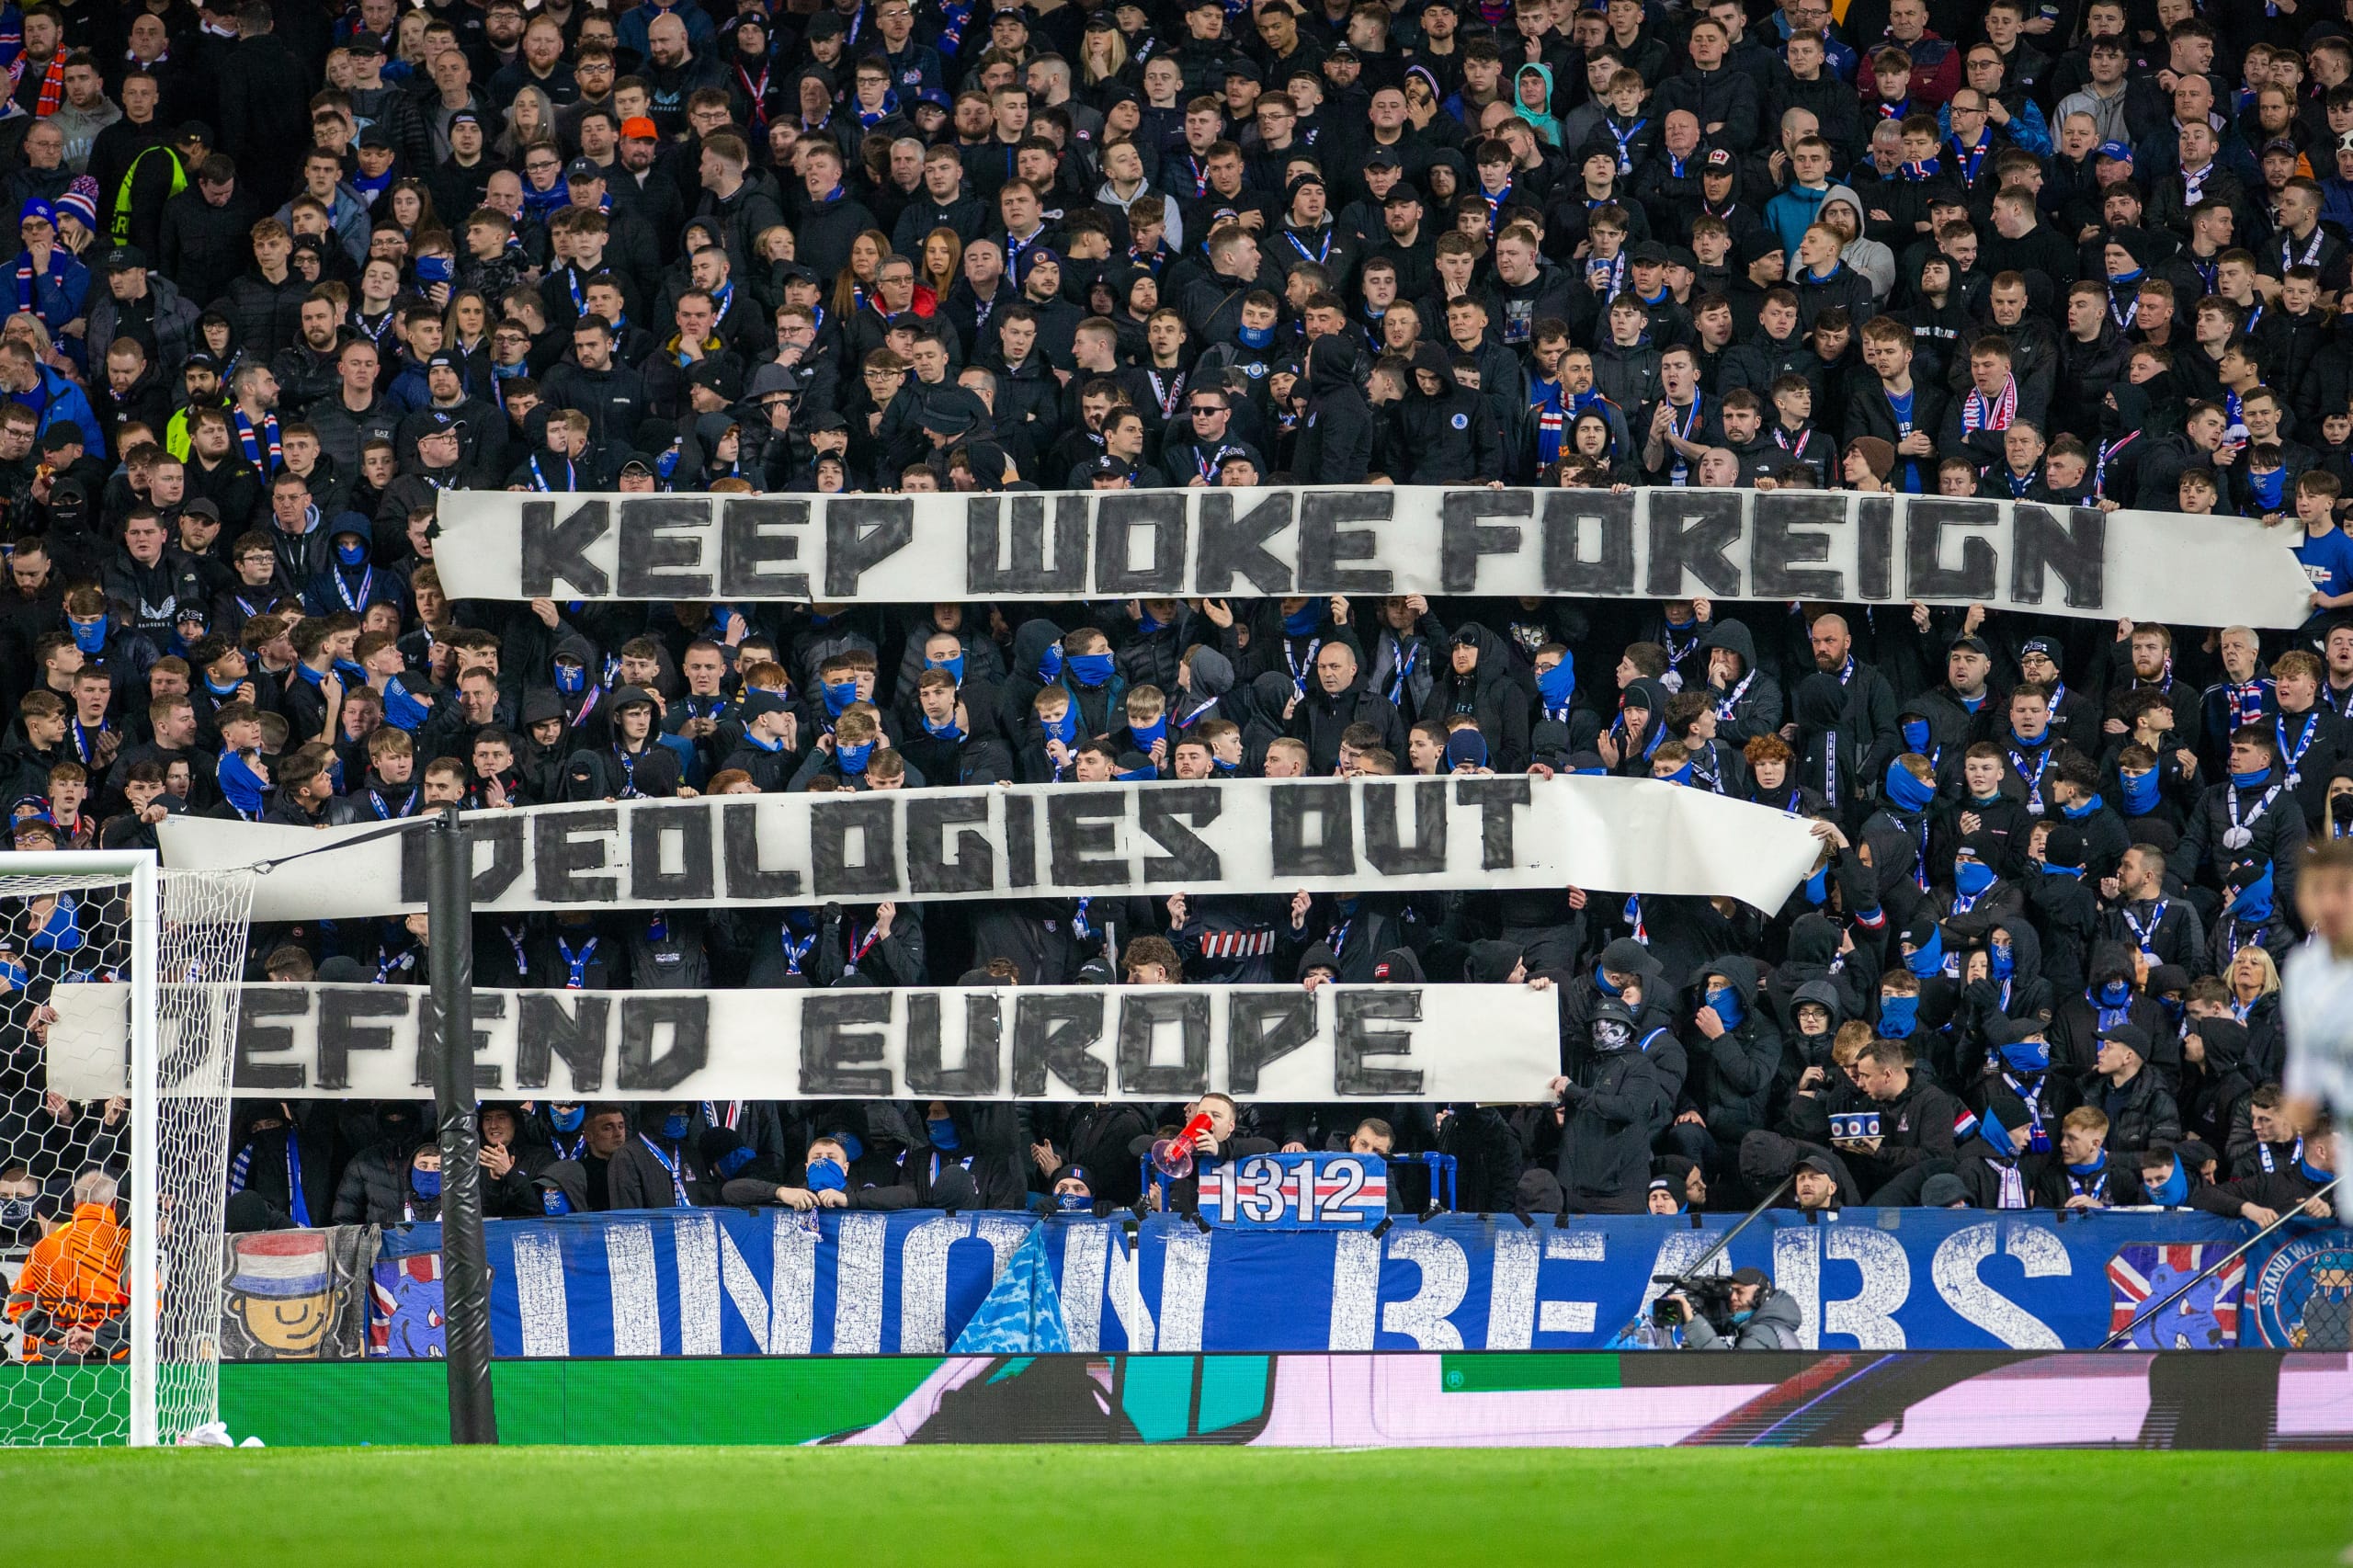 KEEP WOKE FOREIGN
IDEOLOGIES OUT
DEFEND EUROPE
1312
UNION BEARS
STAND WITH